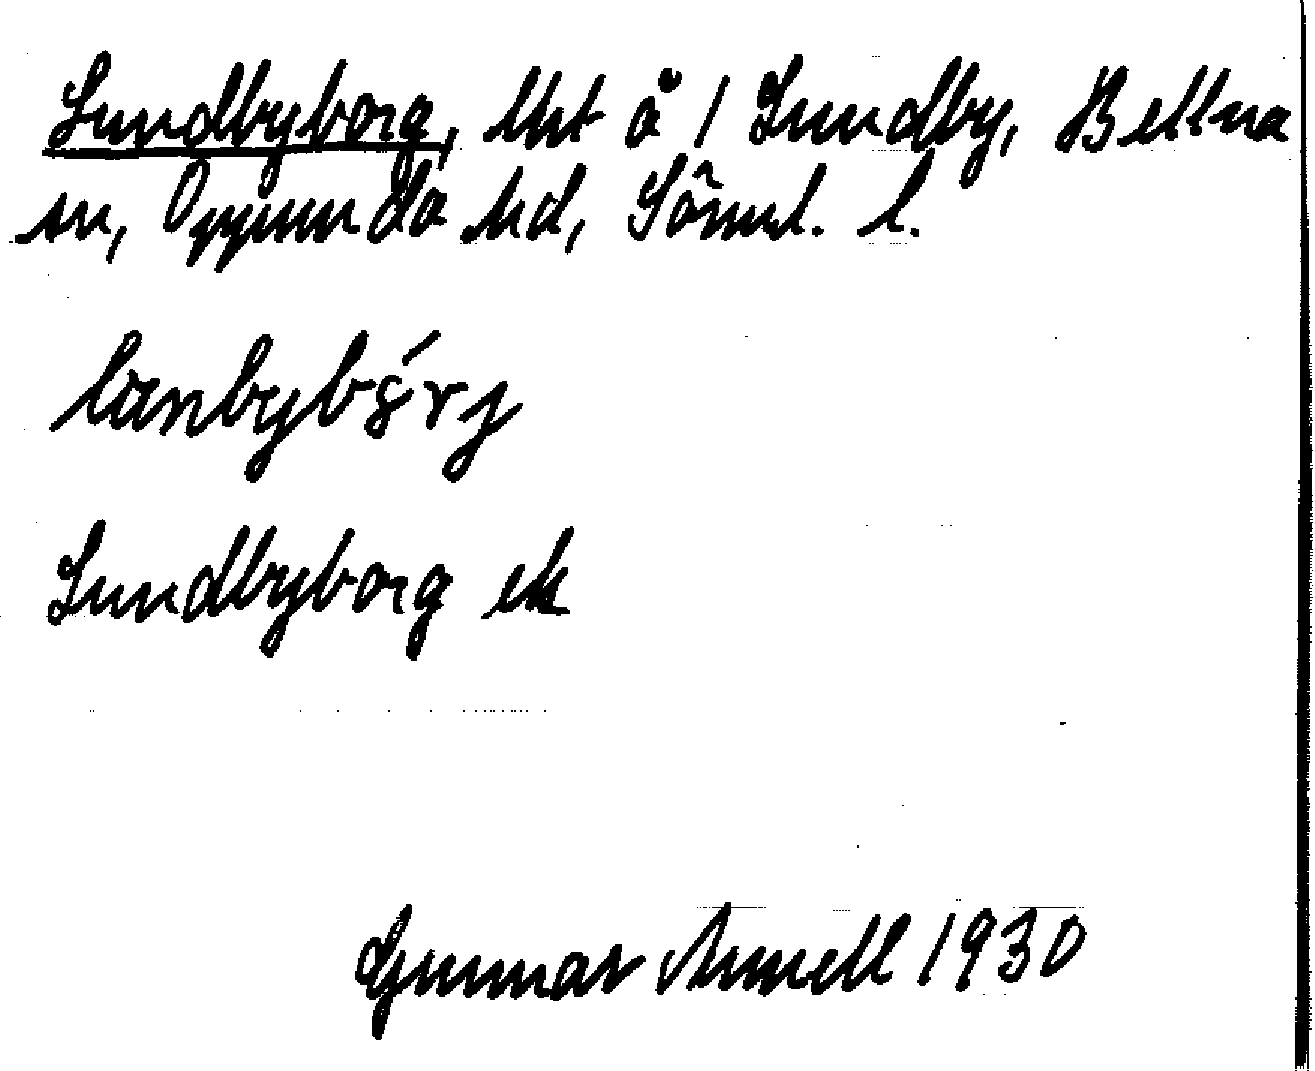 Sundbyborg, lht å 1 Sundby, Bettna
sn, Oppunda hd, Söml. l.
Sundbyborg ek
Gunnar Arnell 1930